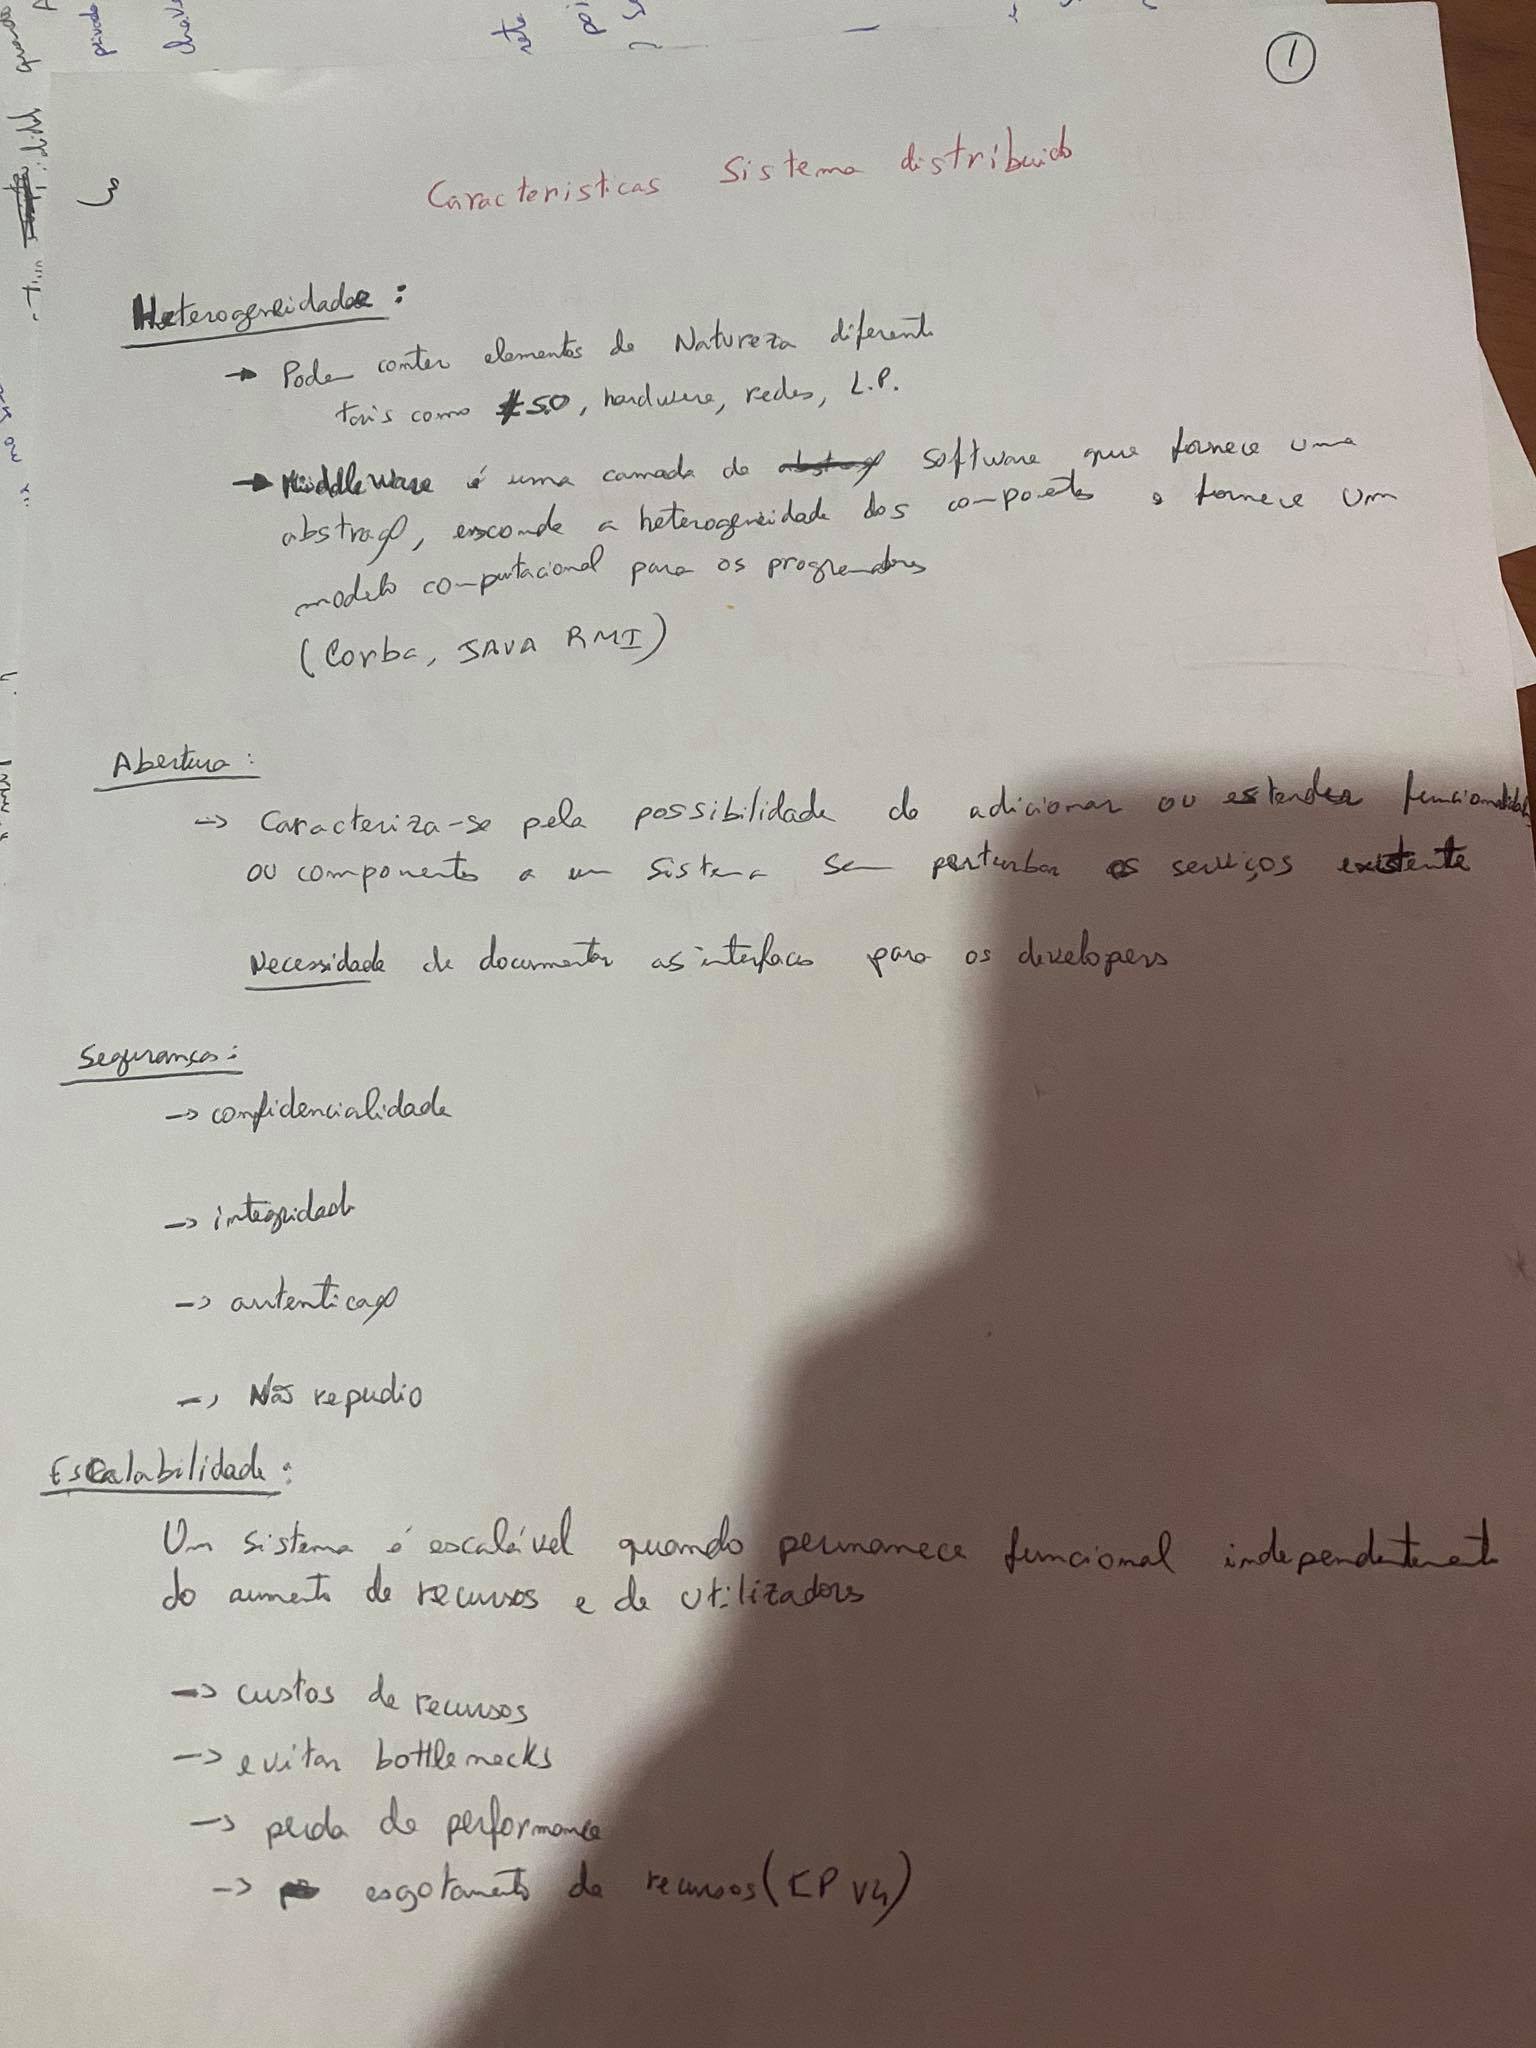 1
Caracteristicas Sistema distribuido
Heterogeneidade:
→ Poder conter elementos de Natureza diferente
tais como S.O, hardware, redes, L.P.
→ Middleware é uma camada de software que fornece uma
abstração, esconde a heterogeneidade dos componentes e fornece um
modelo computacional para os programadores
(Corba, JAVA RMI)
Abertura:
→ Caracteriza-se pela possibilidade de adicionar ou estender funcionalidades
ou componentes a um sistema sem perturbar os serviços existente
Necessidade de documentar as interfaces para os developers
Segurança:
→ confidencialidade
→ integridade
→ autenticação
→ Não repudio
Escalabilidade:
Um sistema é escalável quando permanece funcional independentemente
do aumento de recursos e de utilizadores
→ custos de recursos
→ evitar bottlenecks
→ perda de performance
→ esgotamento de recursos (IP v4)
privada
chave
rota